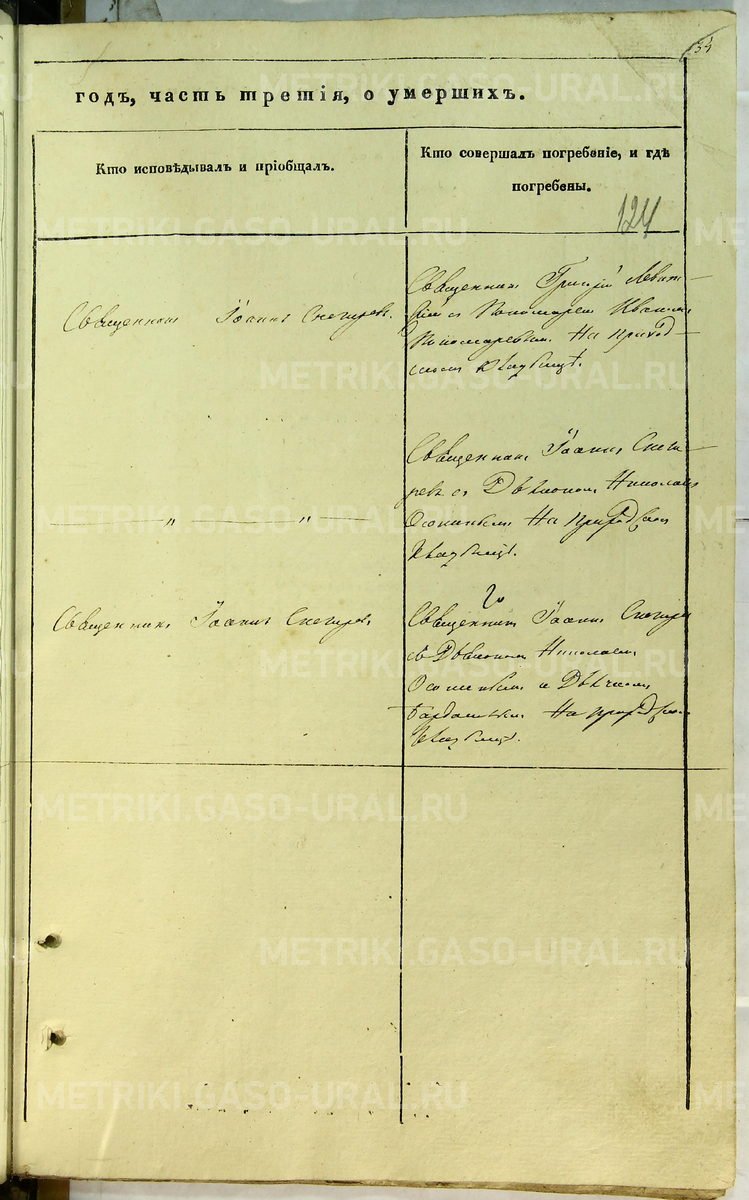 годъ, часть третія, о умершихъ.
Кто исповѣдывалъ и пріобщалъ.
Кто совершалъ погребеніе, и гдѣ
погребены.
124
Священникъ Іоаннъ Снегирев.
Священникъ
с Пономарем Иваном
Пономаревым На приход-
ском кладбищѣ.
— " — " —
Священникъ Іоаннъ Снеги-
рев с Дьякономъ Николаем
Осониным На приходском
кладбищѣ.
Священникъ Іоаннъ Снегирев
Священникъ Іоаннъ Снегирев
с Дьякономъ Николаем
Осониным и Дьячком
На приходском
кладбищѣ.
METRIKI.GASO-URAL.RU